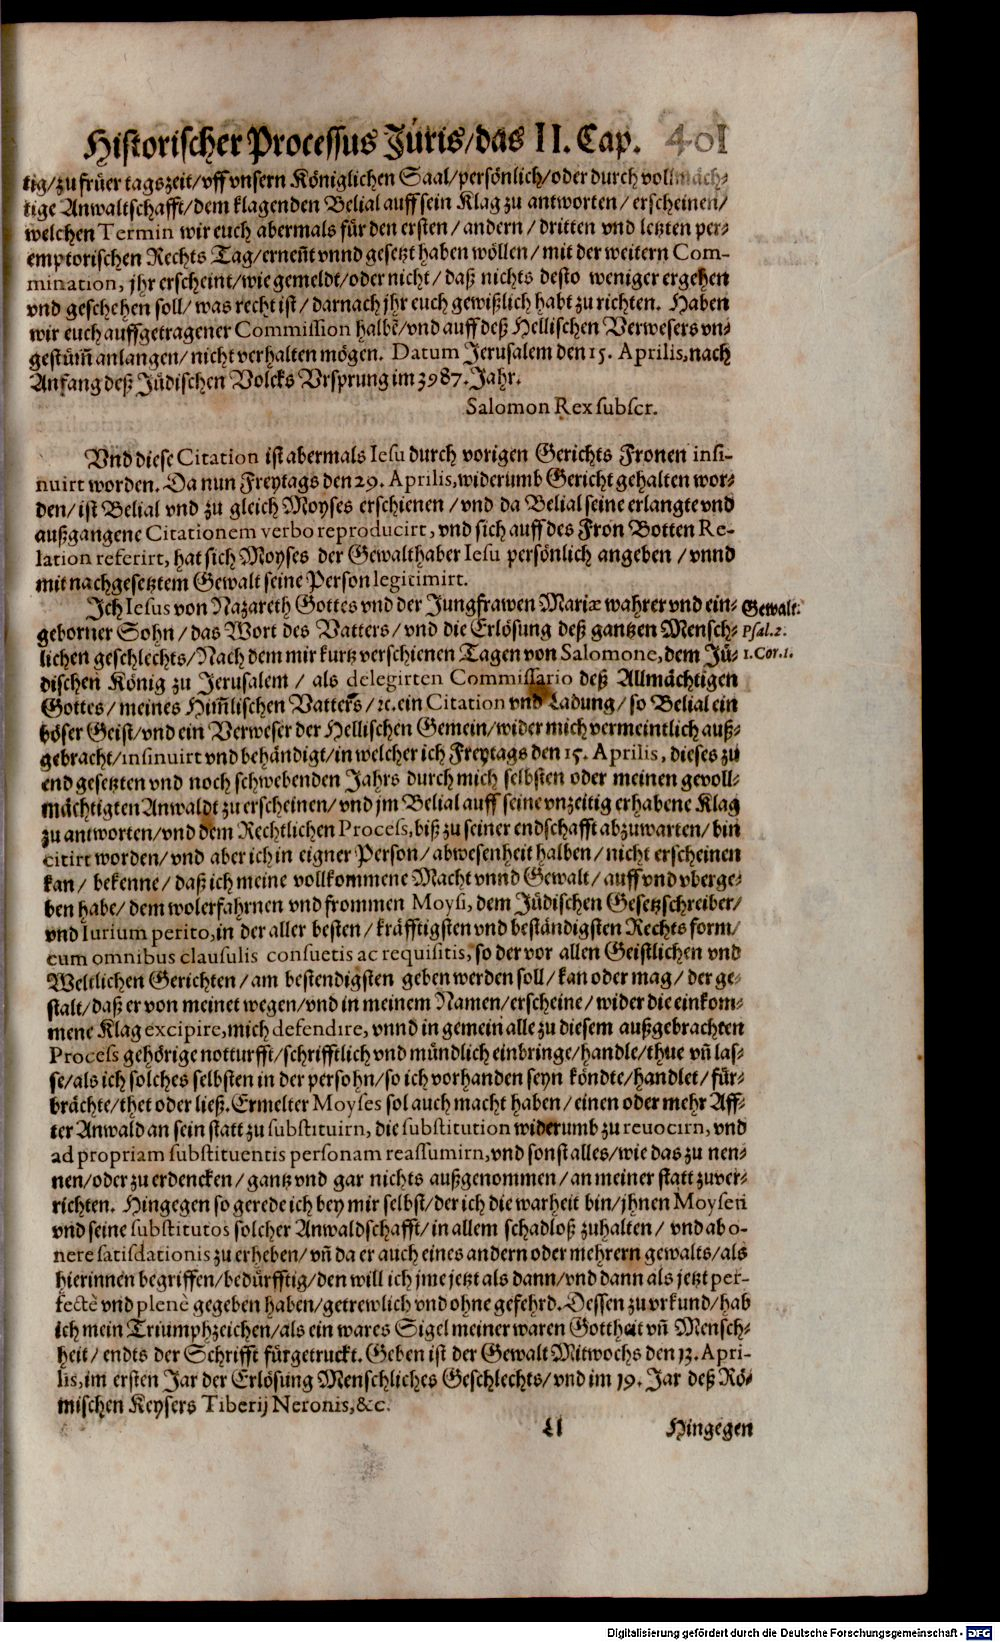 Historischer Processus Juris/das II. Cap. 401
tig/zu früer tagszeit/vff vnsern Königlichen Saal/persönlich/oder durch vollmäch-
tige Anwaltschafft/dem klagenden Belial auff sein Klag zu antworten/erscheinen/
welchen Termin wir euch abermals für den ersten/andern/dritten vnd letzten per-
emptorischen Rechts Tag/ernen̄t vnnd gesetzt haben wöllen/mit der weitern Com-
mination, jhr erscheint/wie gemeldt/oder nicht/daß nichts desto weniger ergehen
vnd geschehen soll/was recht ist/darnach jhr euch gewißlich habt zu richten. Haben
wir euch auffgetragener Commission halbē/vnd auff deß Hellischen Verwesers vn-
gestüm̄ anlangen/nicht verhalten mögen. Datum Jerusalem den 15. Aprilis, nach
Anfang deß Jüdischen Volcks Vrsprung im 3987. Jahr.
Salomon Rex subscr.
Vnd diese Citation ist abermals Iesu durch vorigen Gerichts Fronen insi-
nuirt worden. Da nun Freytags den 29. Aprilis, widerumb Gericht gehalten wor-
den/ist Belial vnd zu gleich Moyses erschienen/vnd da Belial seine erlangte vnd
außgangene Citationem verbo reproducirt, vnd sich auff des Fron Botten Re-
lation referirt, hat sich Moyses der Gewalthaber Iesu persönlich angeben/vnnd
mit nachgesetztem Gewalt seine Person legitimirt.
Ich Iesus von Nazareth Gottes vnd der Jungfrawen Mariæ wahrer vnd ein-
Gewalt.
geborner Sohn/das Wort des Vatters/vnd die Erlösung deß gantzen Mensch-
Psal. 2.
lichen geschlechts/Nach dem mir kurtz verschienen Tagen von Salomone, dem Jü-
1. Cor. 1.
dischen König zu Jerusalem/als delegirten Commissario deß Allmächtigen
Gottes/meines Him̄lischen Vatters/ꝛc. ein Citation vnd Ladung/so Belial ein
böser Geist/vnd ein Verweser der Hellischen Gemein/wider mich vermeintlich auß-
gebracht/insinuirt vnd behändigt/in welcher ich Freytags den 15. Aprilis, dieses zu
end gesetzten vnd noch schwebenden Jahrs durch mich selbsten oder meinen gevoll-
mächtigten Anwaldt zu erscheinen/vnd jm Belial auff seine vnzeitig erhabene Klag
zu antworten/vnd dem Rechtlichen Process, biß zu seiner endschafft abzuwarten/bin
citirt worden/vnd aber ich in eigner Person/abwesenheit halben/nicht erscheinen
kan/bekenne/daß ich meine vollkommene Macht vnnd Gewalt/auff vnd vberge-
ben habe/dem wolerfahrnen vnd frommen Moysi, dem Jüdischen Gesetzschreiber/
vnd Iurium perito, in der aller besten/kräfftigsten vnd beständigsten Rechts form/
cum omnibus clausulis consuetis ac requisitis, so der vor allen Geistlichen vnd
Weltlichen Gerichten/am bestendigsten geben werden soll/kan oder mag/der ge-
stalt/daß er von meinet wegen/vnd in meinem Namen/erscheine/wider die einkom-
mene Klag excipire, mich defendire, vnnd in gemein alle zu diesem außgebrachten
Process gehörige notturfft/schrifftlich vnd mündlich einbringe/handle/thue vn̄ las-
se/als ich solches selbsten in der persohn/so ich vorhanden seyn köndte/handlet/für-
brächte/thet oder ließ. Ermelter Moyses sol auch macht haben/einen oder mehr Aff-
ter Anwald an sein statt zu substituirn, die substitution widerumb zu reuocirn, vnd
ad propriam substituentis personam reassumirn, vnd sonst alles/wie das zu nen-
nen/oder zu erdencken/gantz vnd gar nichts außgenommen/an meiner statt zuver-
richten. Hingegen so gerede ich bey mir selbst/der ich die warheit bin/jhnen Moysen
vnd seine substitutos solcher Anwaldschafft/in allem schadloß zuhalten/vnd ab o-
nere satisdationis zu erheben/vn̄ da er auch eines andern oder mehrern gewalts/als
hierinnen begriffen/bedürfftig/den will ich jme jetzt als dann/vnd dann als jetzt per-
fectè vnd plenè gegeben haben/getrewlich vnd ohne gefehrd. Dessen zu vrkund/hab
ich mein Triumphzeichen/als ein wares Sigel meiner waren Gottheit vn̄ Mensch-
heit/endts der Schrifft fürgetruckt. Geben ist der Gewalt Mitwochs den 13. Apri-
lis, im ersten Jar der Erlösung Menschliches Geschlechts/vnd im 19. Jar deß Rö-
mischen Keysers Tiberij Neronis, &c.
Ll Hingegen
Digitalisierung gefördert durch die Deutsche Forschungsgemeinschaft - DFG